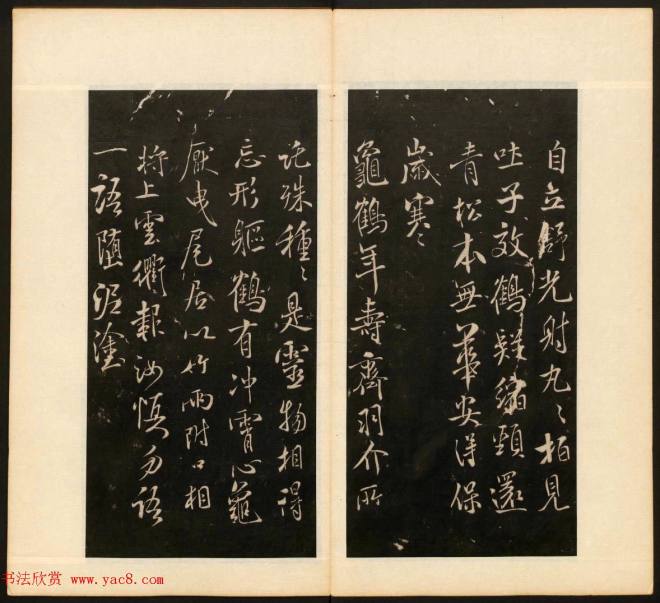 自立舒光射丸〻柏見
吐子效鶴疑縮頸還
青松本無華安得保
歲寒〻
龜鶴年壽齊羽介所
託殊種〻是靈物相得
忘形軀鶴有冲霄心龜
厭曳尾居以竹兩附口相
將上雲衢報汝慎勿語
一語墮泥塗
书法欣赏 www.yac8.com